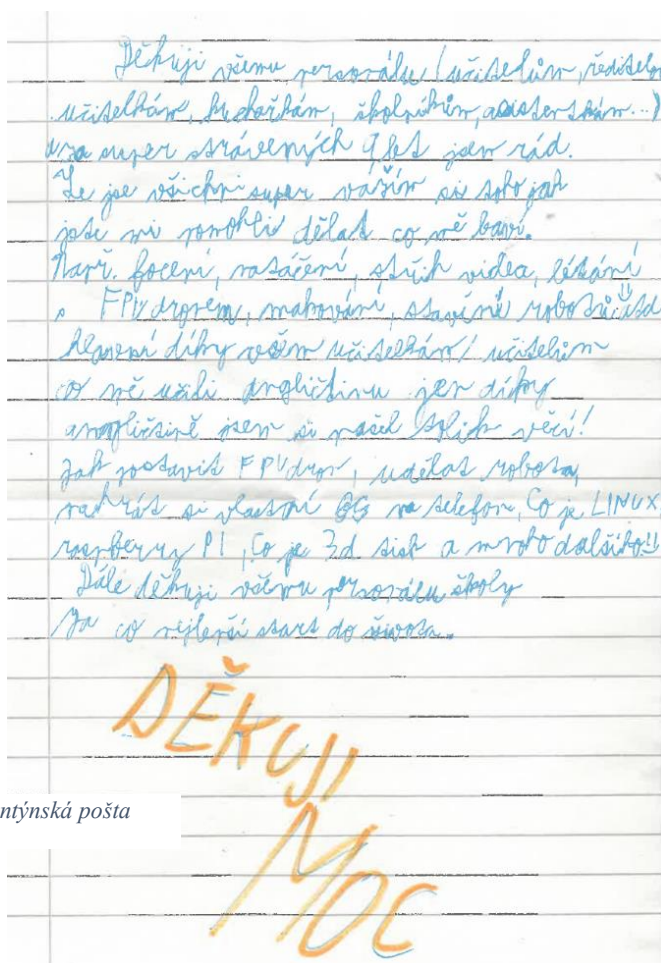 Děkuji všemu personálu (učitelům, ředitelům
učitelkám, kuchařkám, školníkům, asistentkám...)
za super strávených 9 let jsem rád.
Že jse všichni super vážím si toho jak
jste mi pomohli dělat co mě baví.
Např. focení, natáčení, střih videa, létání
s FPV dronem, malování, stavění robotů atd
hlavní díky všem učitelkám/učitelům
co mě učili angličtinu jen díky
angličtině jsem si našel tolik věcí!
Jak postavit FPV dron, udělat robota,
nahrát si vlastní OS na telefon, Co je LINUX,
raspberry PI, Co je 3d tisk a mnoho dalšího!!
Dále děkuji všemu personálu školy
Za co nejlepší start do života.
DĚKUJI
ntýnská pošta
MOC